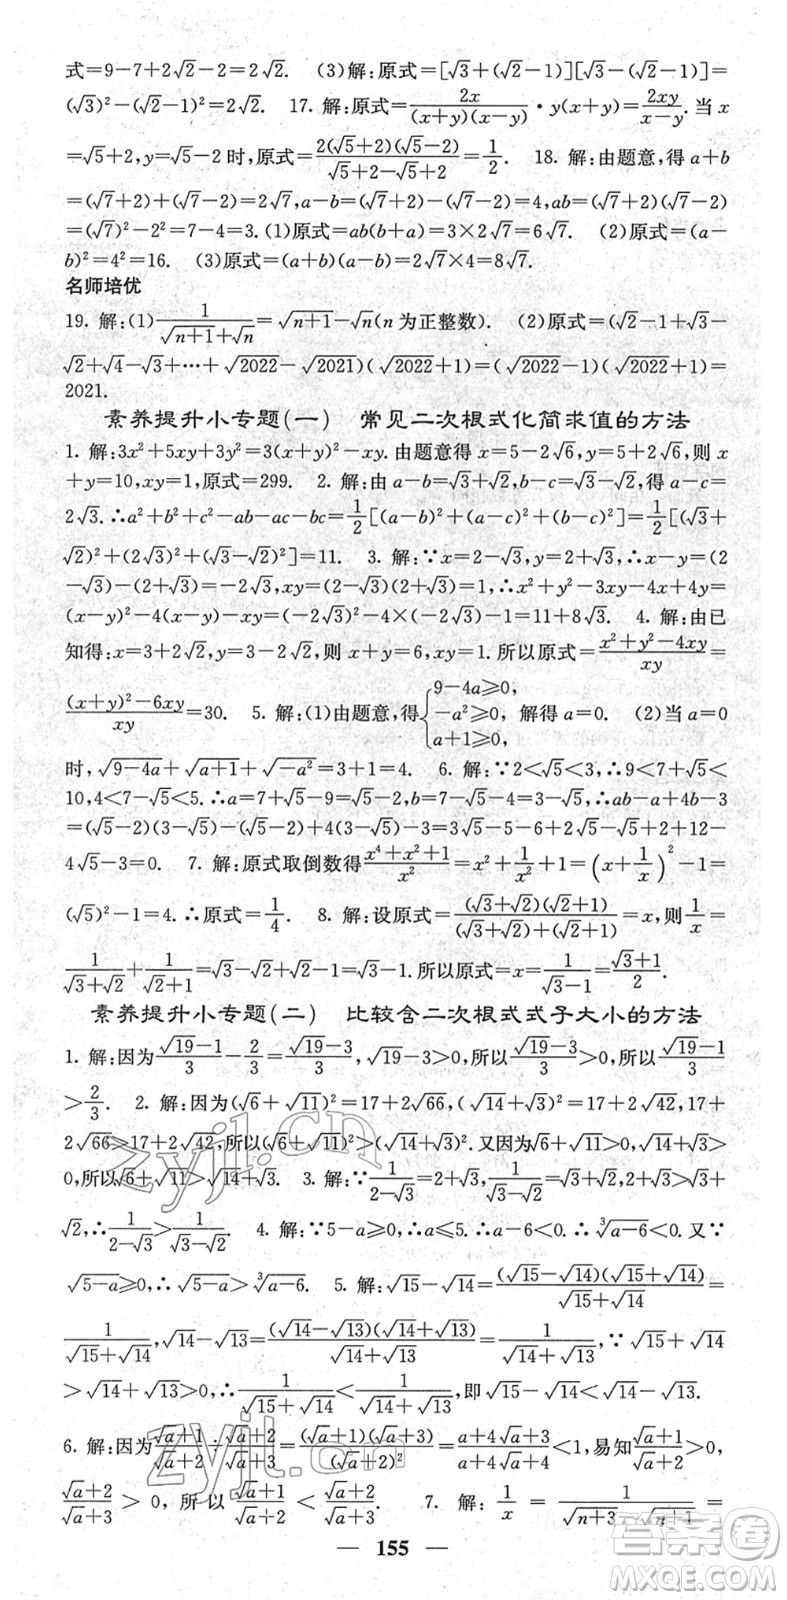 式=9-7+2√2-2=2√2. (3)解:原式=[√3+(√2-1)][√3-(√2-1)]=
(√3)²-(√2-1)²=2√2. 17. 解:原式=2x/((x+y)(x-y))·y(x+y)=2xy/(x-y).当 x
=√5+2,y=√5-2时,原式=2(√5+2)(√5-2)/(√5+2-√5+2)=1/2. 18. 解:由题意,得 a+b
=(√7+2)+(√7-2)=2√7,a-b=(√7+2)-(√7-2)=4,ab=(√7+2)(√7-2)
=(√7)²-2²=7-4=3.(1)原式=ab(b+a)=3×2√7=6√7. (2)原式=(a-
b)²=4²=16. (3)原式=(a+b)(a-b)=2√7×4=8√7.
名师培优
19. 解:(1)1/(√(n+1)+√n)=√(n+1)-√n(n 为正整数). (2)原式=(√2-1+√3-
√2+√4-√3+…+√2022-√2021)(√2022+1)=(√2022-1)(√2022+1)=
2021.
素养提升小专题(一) 常见二次根式化简求值的方法
1. 解:3x²+5xy+3y²=3(x+y)²-xy.由题意得 x=5-2√6,y=5+2√6,则 x
+y=10,xy=1,原式=299. 2. 解:由 a-b=√3+√2,b-c=√3-√2,得 a-c=
2√3.∴a²+b²+c²-ab-ac-bc=1/2[(a-b)²+(a-c)²+(b-c)²]=1/2[(√3+
√2)²+(2√3)²+(√3-√2)²]=11. 3. 解:∵x=2-√3,y=2+√3,∴x-y=(2
-√3)-(2+√3)=-2√3,xy=(2-√3)(2+√3)=1,∴x²+y²-3xy-4x+4y=
(x-y)²-4(x-y)-xy=(-2√3)²-4×(-2√3)-1=11+8√3. 4. 解:由已
知得:x=3+2√2,y=3-2√2,则 x+y=6,xy=1.所以原式=(x²+y²-4xy)/xy=
((x+y)²-6xy)/xy=30. 5. 解:(1)由题意,得{9-4a≥0, -a²≥0, a+1≥0; 解得 a=0. (2)当 a=0
时,√(9-4a)+√(a+1)+√(-a²)=3+1=4. 6. 解:∵2<√5<3,∴9<7+√5<
10,4<7-√5<5.∴a=7+√5-9=√5-2,b=7-√5-4=3-√5,∴ab-a+4b-3
=(√5-2)(3-√5)-(√5-2)+4(3-√5)-3=3√5-5-6+2√5-√5+2+12-
4√5-3=0. 7. 解:原式取倒数得(x⁴+x²+1)/x²=x²+1/x²+1=(x+1/x)²-1=
(√5)²-1=4.∴原式=1/4. 8. 解:设原式=(√3+√2)(√2+1)/((√3+√2)+(√2+1))=x,则1/x=
1/(√3+√2)+1/(√2+1)=√3-√2+√2-1=√3-1.所以原式=x=1/(√3-1)=(√3+1)/2.
素养提升小专题(二) 比较含二次根式式子大小的方法
1. 解:因为(√19-1)/3-2/3=(√19-3)/3,√19-3>0,所以(√19-3)/3>0,所以(√19-1)/3
>2/3. 2. 解:因为(√6+√11)²=17+2√66,(√14+√3)²=17+2√42,17+
2√66>17+2√42,所以(√6+√11)²>(√14+√3)².又因为√6+√11>0,√14+√3>
0,所以√6+√11>√14+√3. 3. 解:∵1/(2-√3)=2+√3,1/(√3-√2)=√3+√2,2+√3>√3+
√2,∴1/(2-√3)>1/(√3-√2). 4. 解:∵5-a≥0,∴a≤5.∴a-6<0.∴∛(a-6)<0.又∵
√(5-a)≥0,∴√(5-a)>∛(a-6). 5. 解:√15-√14=(√15-√14)(√15+√14)/(√15+√14)=
1/(√15+√14),√14-√13=(√14-√13)(√14+√13)/(√14+√13)=1/(√14+√13),∵√15+√14
>√14+√13>0,∴1/(√15+√14)<1/(√14+√13),即√15-√14<√14-√13.
6. 解:因为(√a+1)/(√a+2)÷(√a+2)/(√a+3)=(√a+1)(√a+3)/(√a+2)²=(a+4√a+3)/(a+4√a+4)<1,易知(√a+1)/(√a+2)>0,
(√a+2)/(√a+3)>0,所以(√a+1)/(√a+2)<(√a+2)/(√a+3). 7. 解:1/x=1/(√(n+3)-√(n+1))=
— 155 —
zyjl.cn
zyjl.cn
答案圈
MXQE.COM